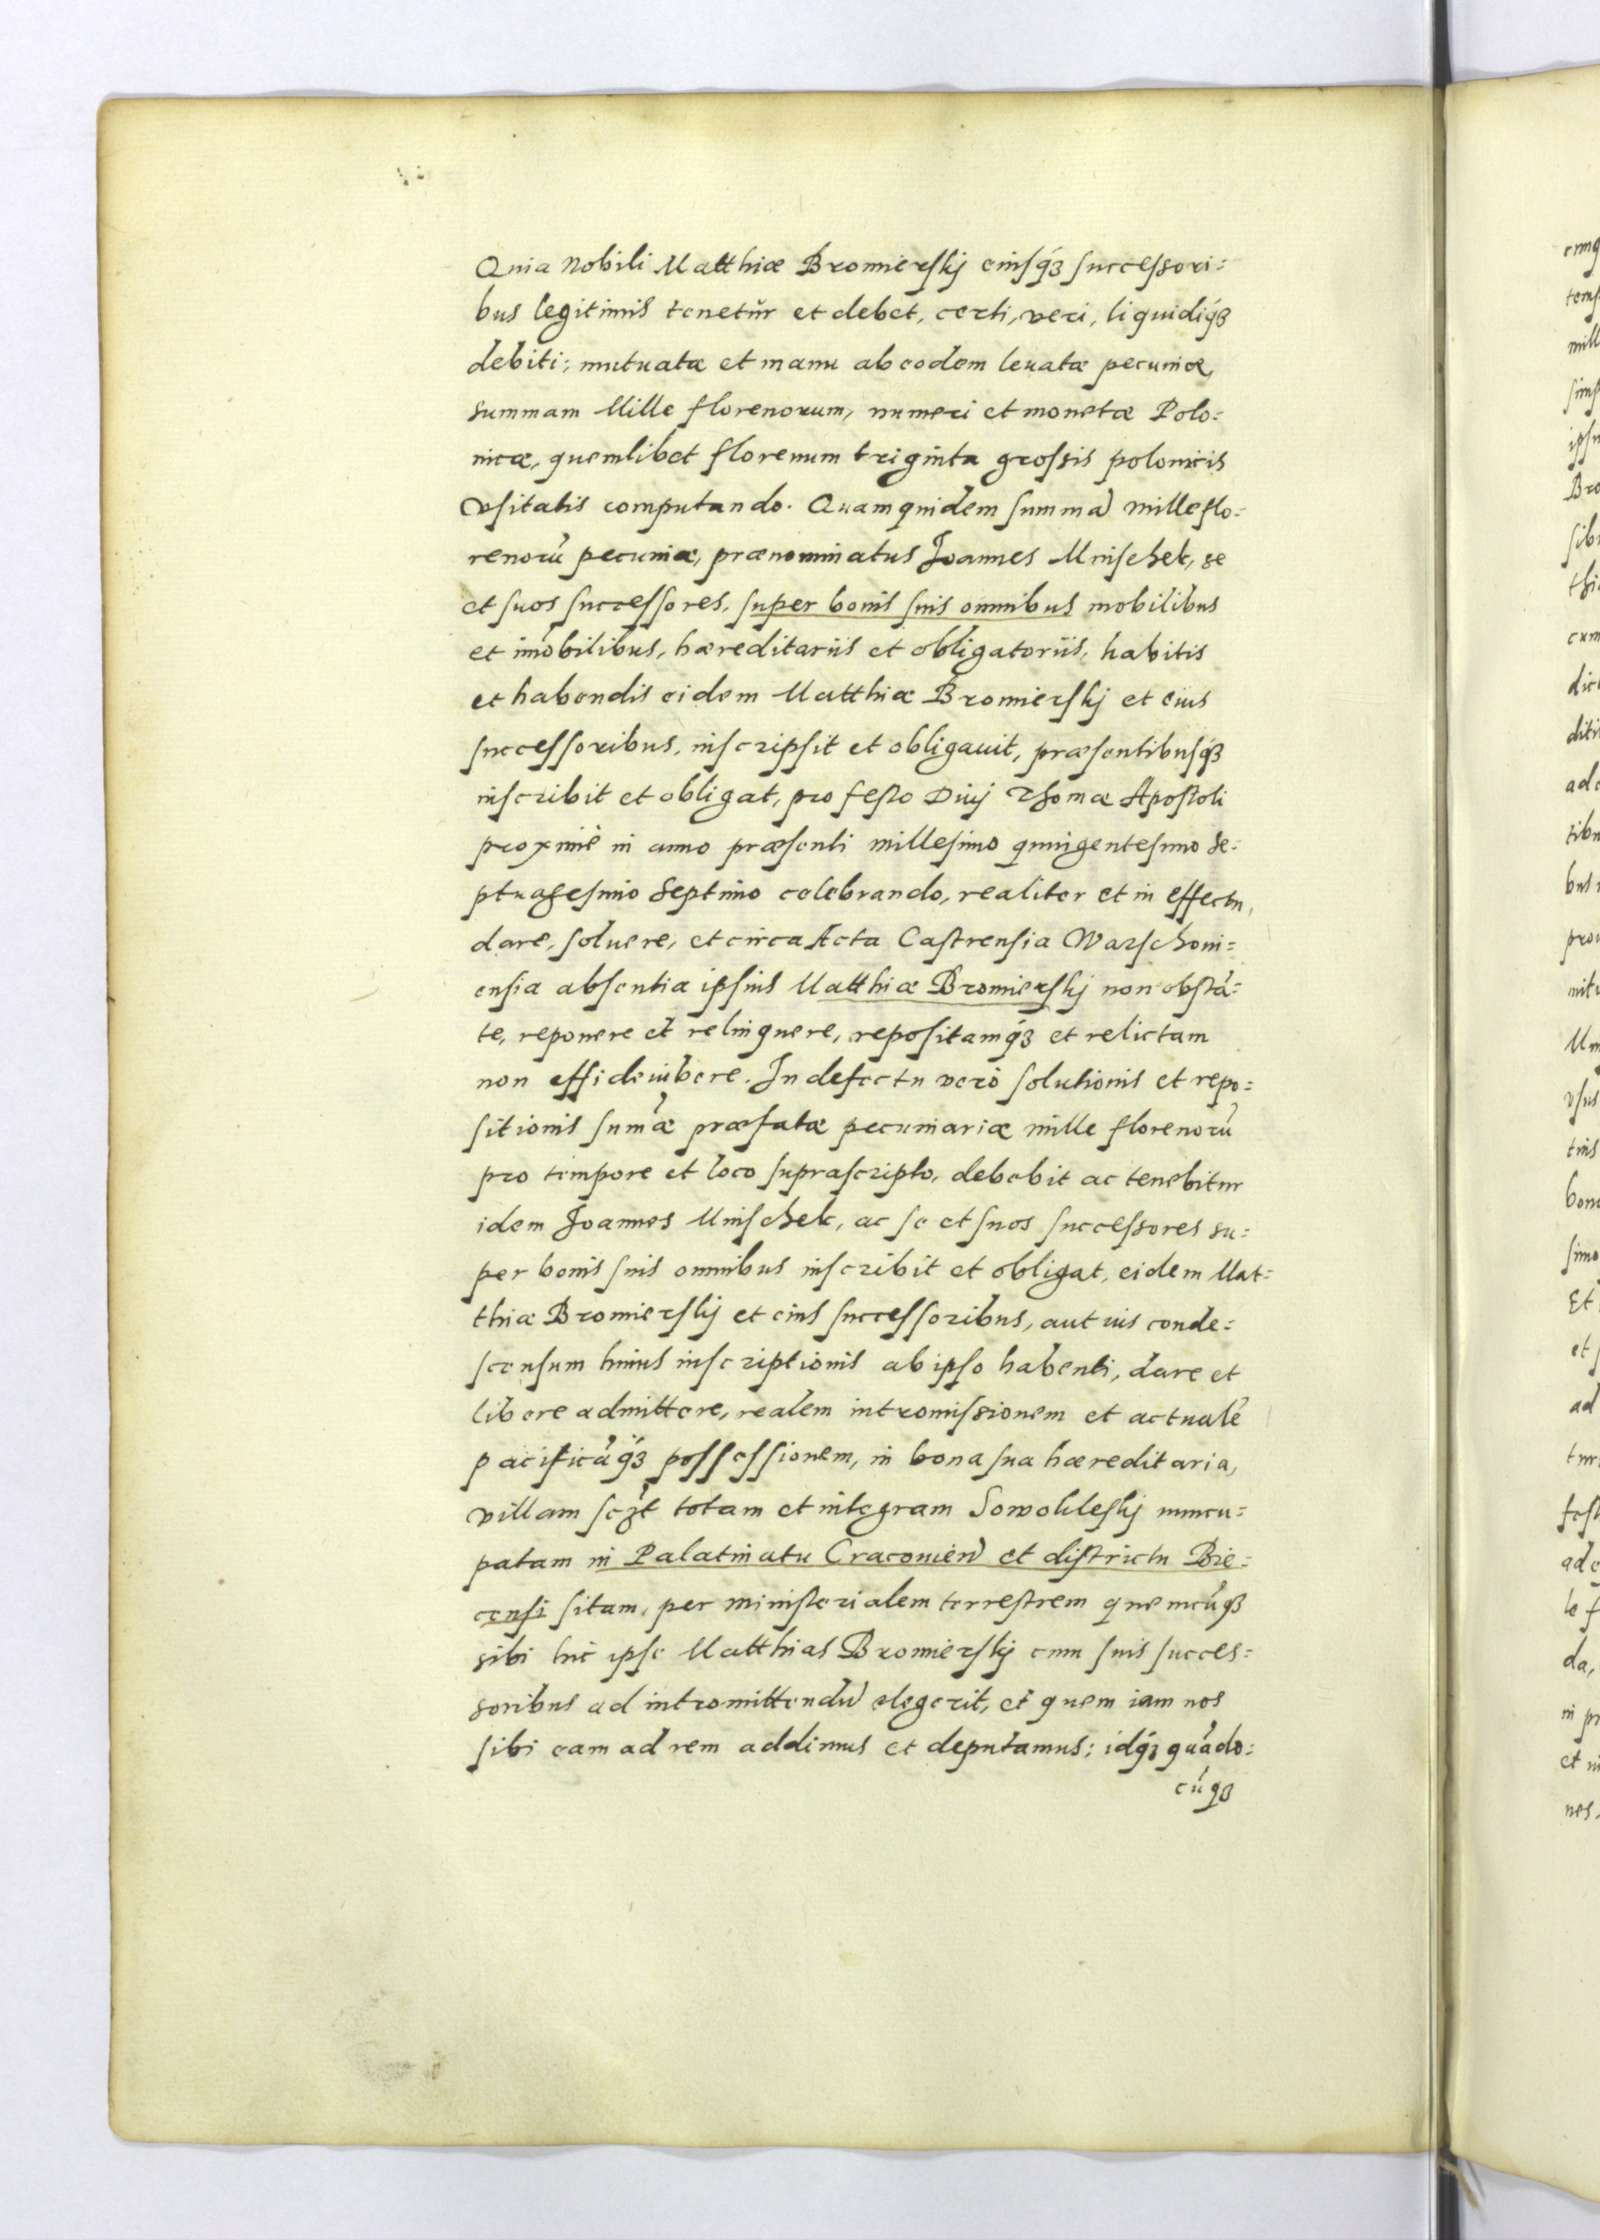 Quia Nobili Matthiæ Bromierskj eiusq́ꝫ successori=
bus legitimis tenetŭr et debet, certi, veri, liquidiq́ꝫ
debiti; mutuatæ et manu ab eodem leuatæ pecuniæ,
summam Mille florenorum, numeri et monetæ Polo=
nicæ, quemlibet florenum triginta grossis polonicis
vsitatis computando. Quam quidem summā mille flo=
renorū pecuniæ, prænominatus Joannes Mnischek, se
et suos successores, super bonis suis omnibus mobilibus
et im̄obilibus, hæreditariis et obligatoriis, habitis
et habendis eidem Matthiæ Bromierskj et eius
successoribus, inscripsit et obligauit, præsentibusq́ꝫ
inscribit et obligat, pro festo Diuj Thomæ Apostoli
proximè in anno præsenti millesimo quingentesimo se=
ptuagesimo septimo celebrando, realiter et in effectu,
dare, soluere, et circa Acta Castrensia Warschoui=
ensia absentia ipsius Matthiæ Bromierskj non obstā=
te, reponere et relinquere, repositamq́ꝫ et relictam
non effideiubere. In defectu verò solutionis et repo=
sitionis sum̄æ præfatæ pecuniariæ mille florenorū
pro tempore et loco suprascripto, debebit ac tenebitur
idem Joannes Mnischek, ac se et suos successores su=
per bonis suis omnibus inscribit et obligat, eidem Mat=
thiæ Bromierskj et eius successoribus, aut ius conde=
scensum huius inscriptionis ab ipso habenti, dare et
libere admittere, realem intromissionem et actualē
pacificāq́ꝫ possessionem, in bona sua hæreditaria,
villam scꝫt totam et integram Sowokleskj nuncu=
patam in Palatinatu Cracouien̄ et districtu Bie=
censi sitam, per ministerialem terrestrem quemcūqꝫ
sibi hic ipse Matthias Bromierskj cum suis succes=
soribus ad intromittendū elegerit, et quem iam nos
sibi eam ad rem addimus et deputamus; idq́ꝫ quādo=
cūqꝫ